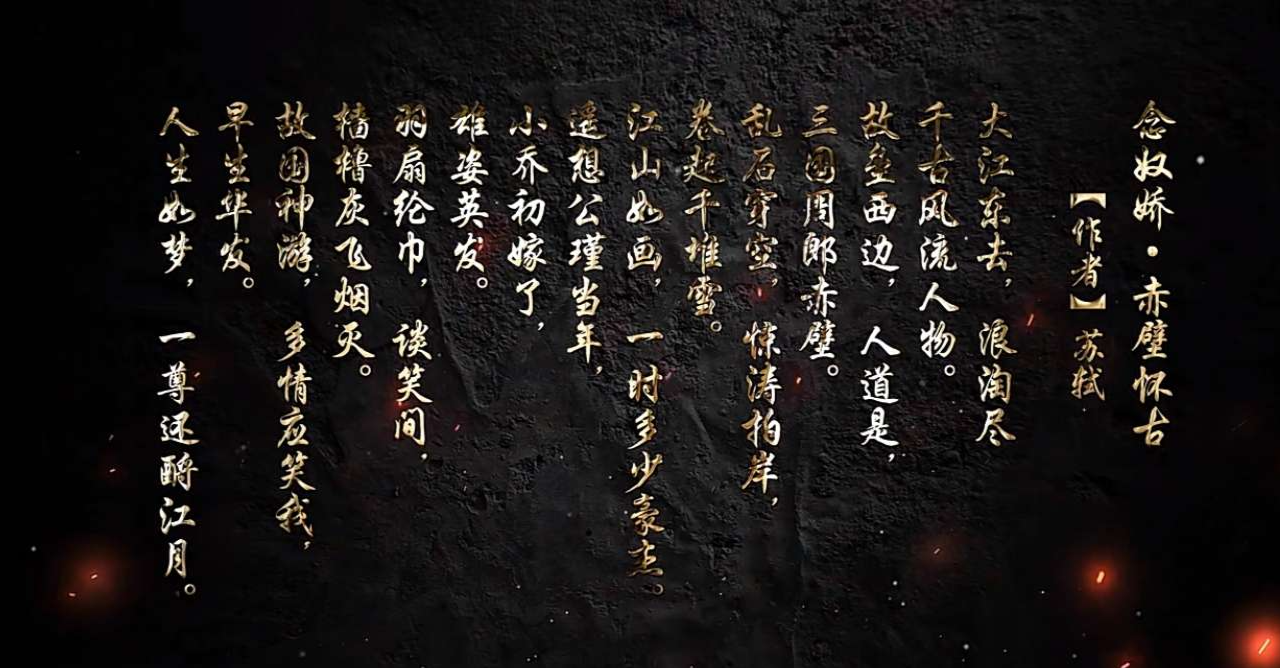 念奴娇·赤壁怀古
【作者】苏轼
大江东去，浪淘尽
千古风流人物。
故垒西边，人道是，
三国周郎赤壁。
乱石穿空，惊涛拍岸，
卷起千堆雪。
江山如画，一时多少豪杰。
遥想公瑾当年，
小乔初嫁了，
雄姿英发。
羽扇纶巾，谈笑间，
樯橹灰飞烟灭。
故国神游，多情应笑我，
早生华发。
人生如梦，一尊还酹江月。